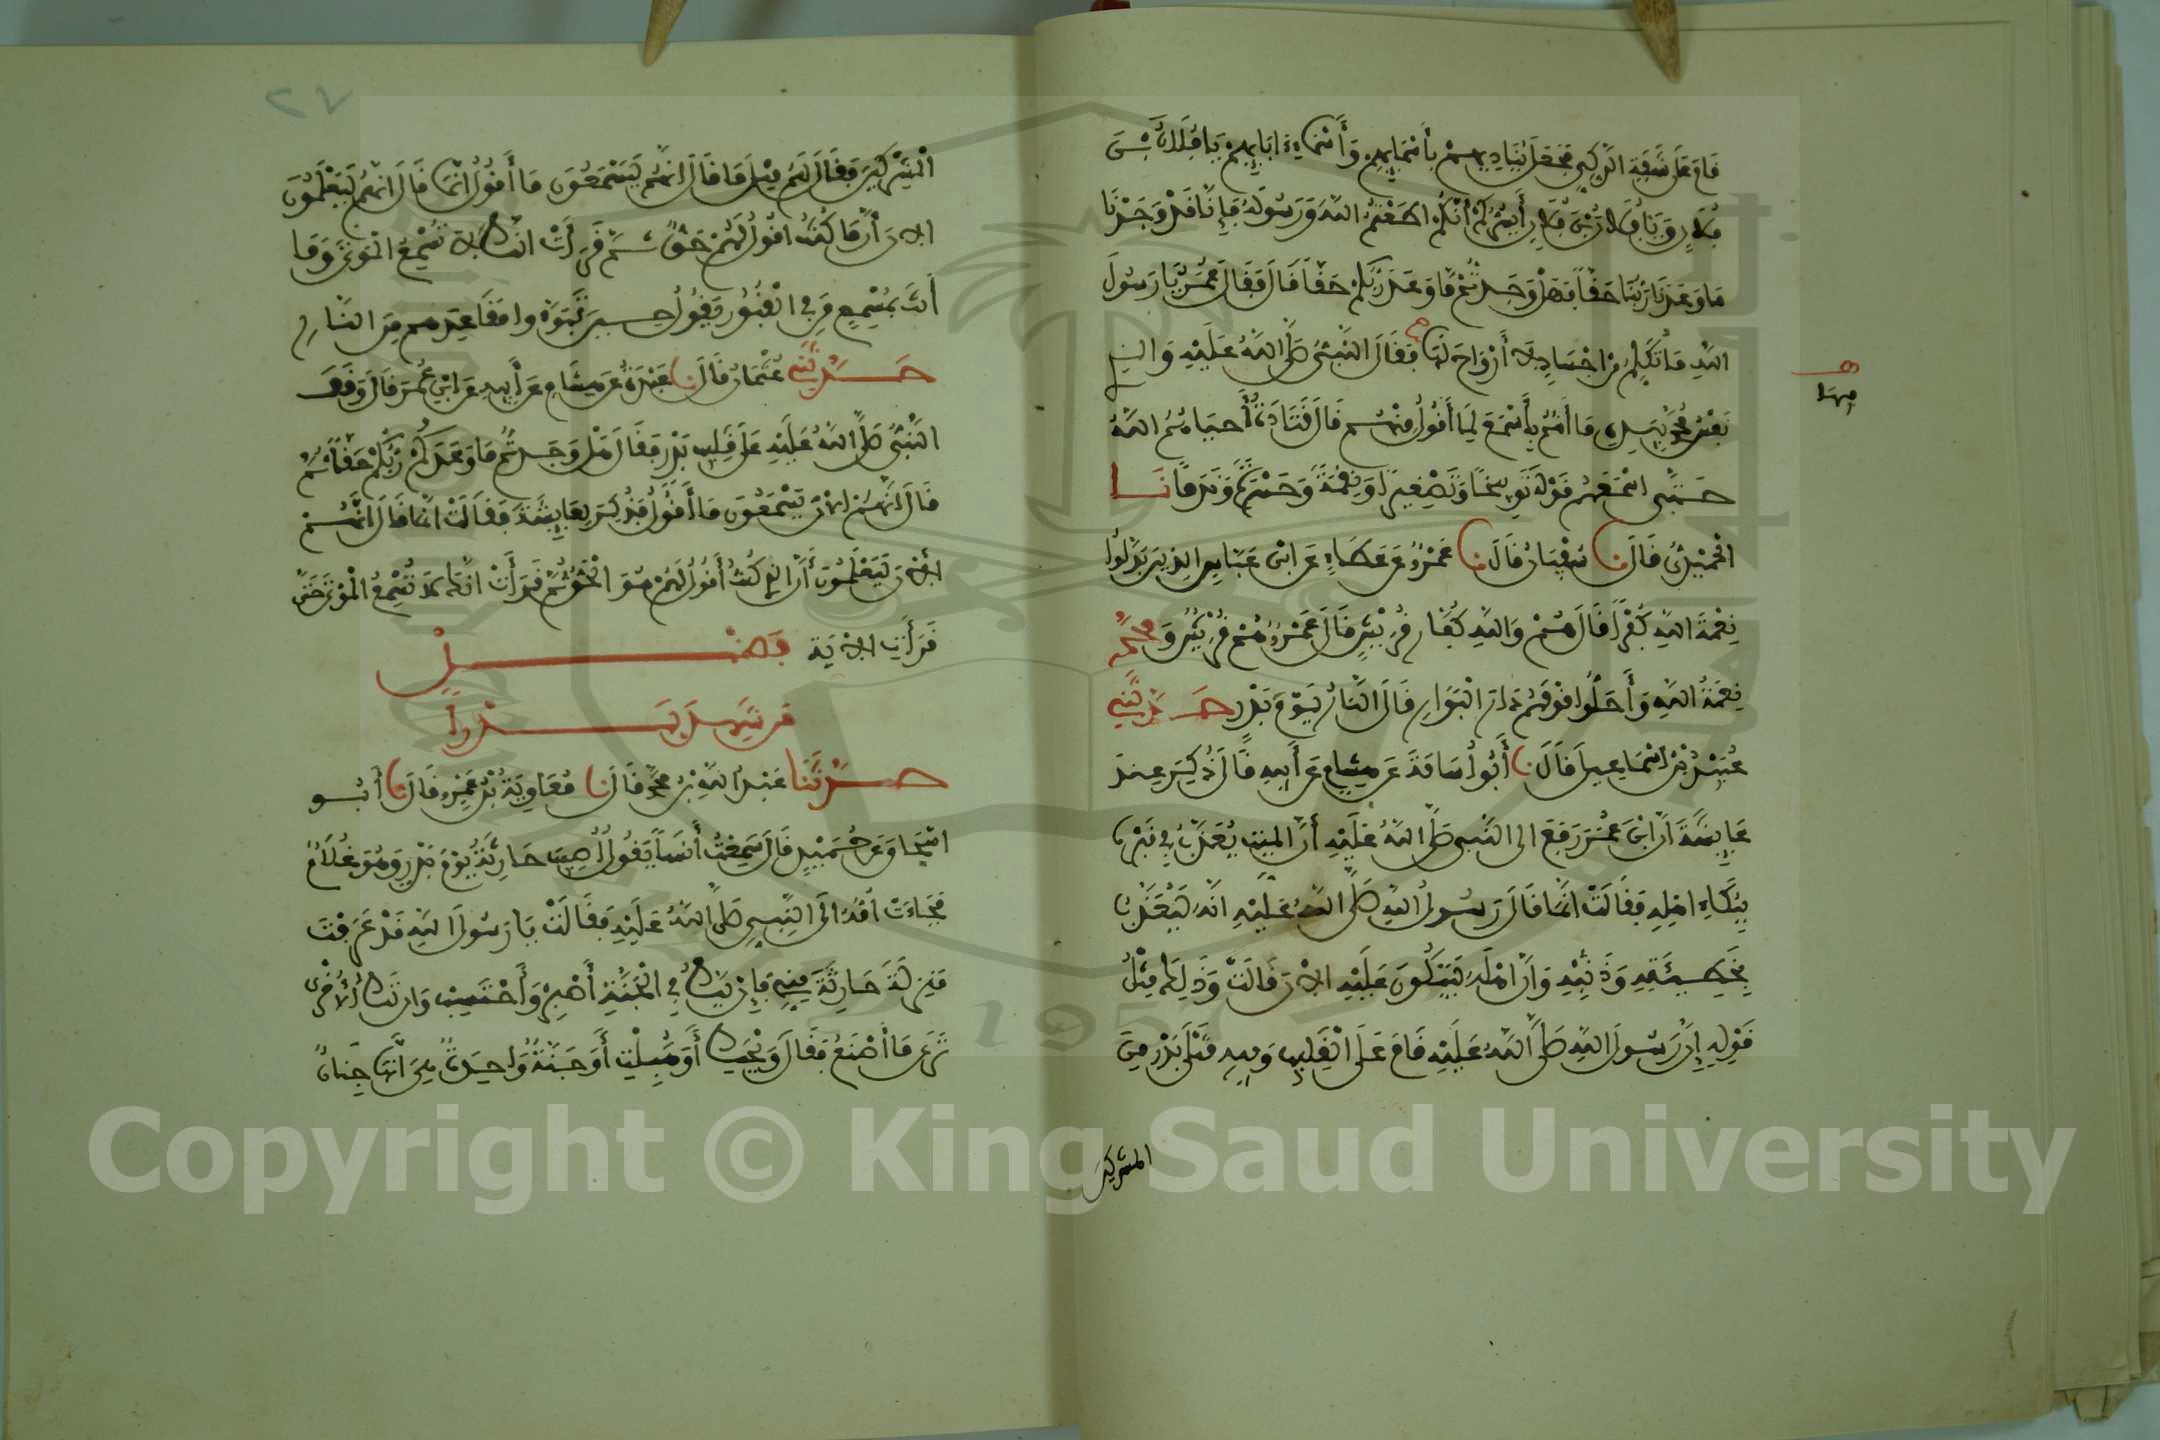 قام على شفة الركي فجعل يناديهم بأسمايهم وأسماء ابايهم يا فلان بن
فلان ويا فلان بن فلان أيسركم أنكم اطعتم الله ورسوله فإنا قد وجدنا
ما وعدنا ربنا حقا فهل وجدتم ما وعد ربكم حقا قال فقال عمر يا رسول
الله ما تكلم من اجساد لا أرواح لها فقال النبي صلى الله عليه والذي
نفس محمد بيده ما أنتم بأسمع لما أقول منهم قال قتادة أحياهم الله
حتى اسمعهم قوله توبيخا وتصغيرا ونقمة وحسرة وندما نا
الحميدي قال نا سفيان قال نا عمرو عن عطاء عن ابن عباس الذين بدلوا
نعمة الله كفرا قال هم والله كفار قريش قال عمرو هم قريش ومحمد
نعمة الله وأحلوا قومهم دار البوار قال النار يوم بدر حدثني
عبيد بن اسماعيل قال نا أبو أسامة عن هشام عن أبيه قال ذكر عند
عايشة أن ابن عمر رفع الى النبي صلى الله عليه أن الميت يعذب في قبره
ببكاء اهله فقالت انما قال رسول الله صلى الله عليه انه ليعذب
بخطيئته وذنبه وأن اهله ليبكون عليه الآن قالت وذلك مثل
قوله إن رسول الله صلى الله عليه قام على القليب وفيه قتلى بدر من
المشركين
٢٧
المشركين فقال لهم مثل ما قال انهم ليسمعون ما أقول انما قال انهم ليعلمون
الآن أن ما كنت اقول لهم حق ثم قرأت انك لا تسمع الموتى وما
أنت بمسمع من في القبور يقول حين تبوءوا مقاعدهم من النار
حدثني عثمان قال نا عبدة عن هشام عن أبيه عن ابن عمر قال وقف
النبي صلى الله عليه على قليب بدر فقال هل وجدتم ما وعدكم ربكم حقا ثم
قال انهم الآن يسمعون ما أقول فذكر لعايشة فقالت انما قال انهم
الآن ليعلمون أن الذي كنت أقول لهم هو الحق ثم قرأت انك لا تسمع الموتى حتى
قرأت الآية فضل
من شهد بدرا
حدثنا عبد الله بن محمد قال نا معاوية بن عمرو قال نا أبو
اسحاق عن حميد قال سمعت أنسا يقول أصيب حارثة يوم بدر وهو غلام
فجاءت أمه الى النبي صلى الله عليه فقالت يا رسول الله قد عرفت
منزلة حارثة مني فإن يك في الجنة أصبر وأحتسب وان تك الأخرى
ترى ما أصنع فقال ويحك أو هبلت أو جنة واحدة هي انها جنان